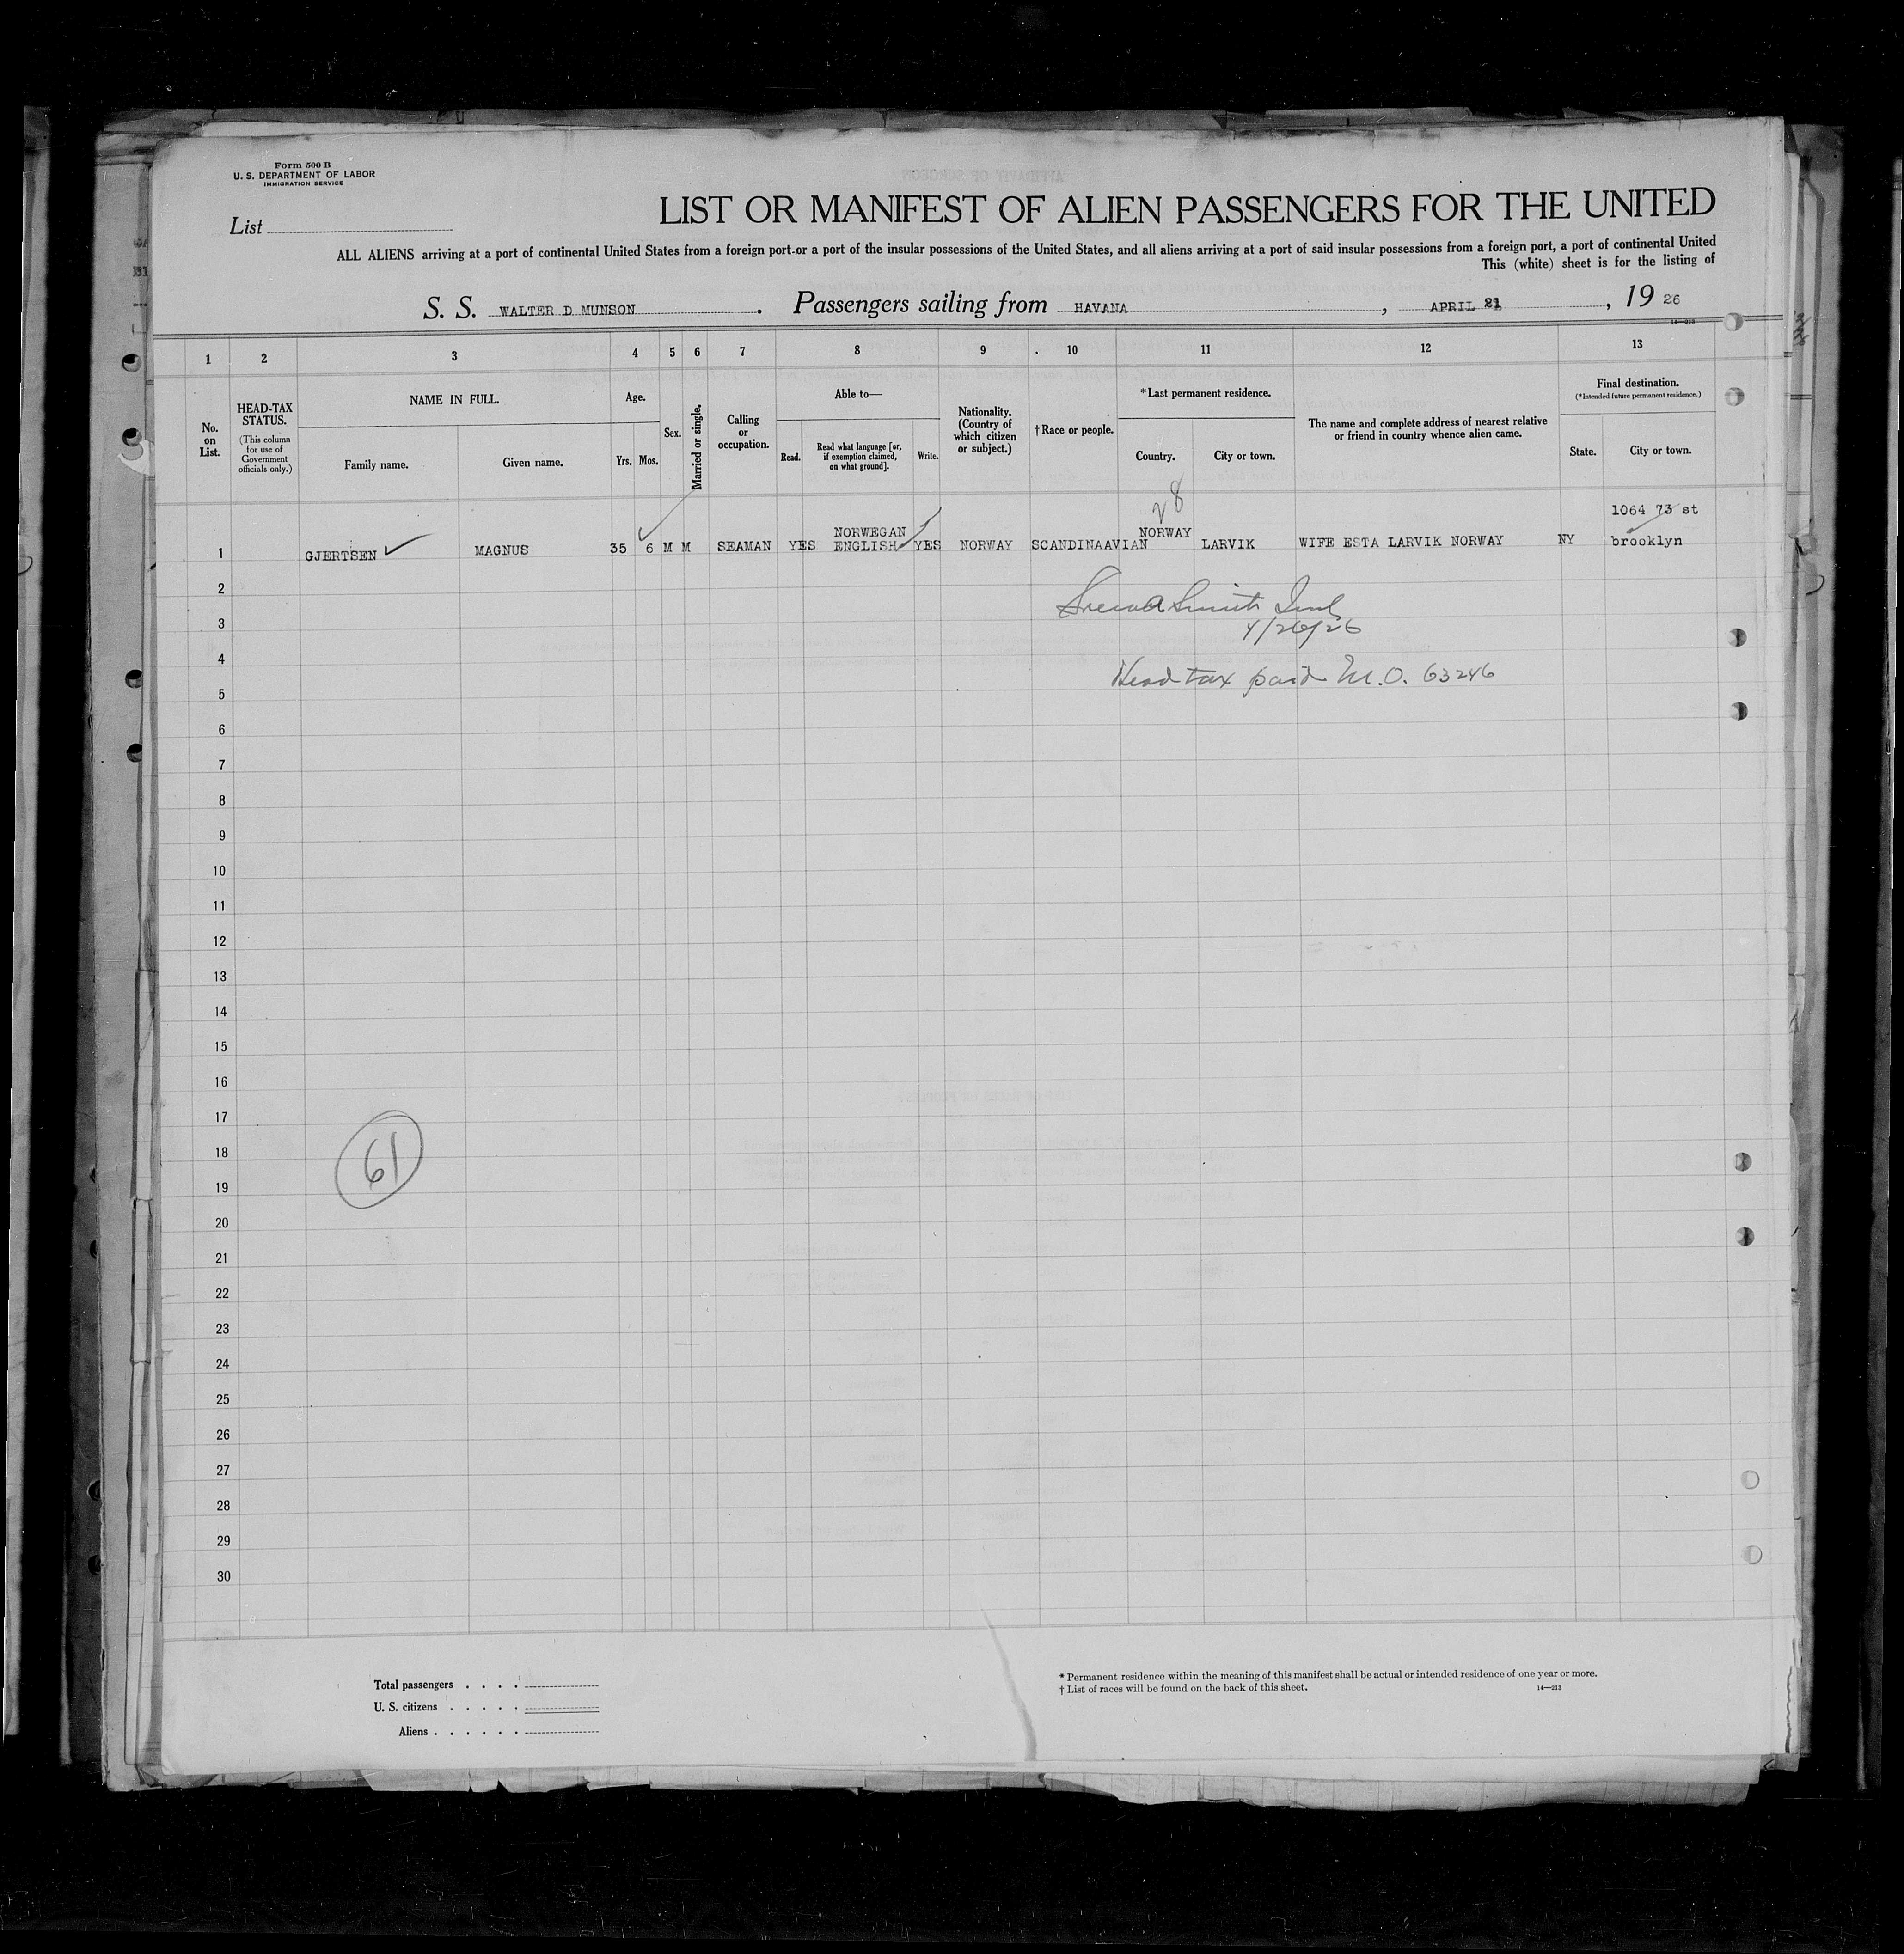 Form 500 B
U. S. DEPARTMENT OF LABOR
IMMIGRATION SERVICE
List
LIST OR MANIFEST OF ALIEN PASSENGERS FOR THE UNITED
ALL ALIENS arriving at a port of continental United States from a foreign port or a port of the insular possessions of the United States, and all aliens arriving at a port of said insular possessions from a foreign port, a port of continental United
This (white) sheet is for the listing of
S. S. WALTER D MUNSON. Passengers sailing from HAVANA, APRIL 21, 19 26
14—213
1 2 3 4 5 6 7 8 9 10 11 12 13
No. on List.
HEAD-TAX STATUS.
(This column for use of Government officials only.)
NAME IN FULL.
Family name.
Given name.
Age.
Yrs. Mos.
Sex.
Married or single.
Calling or occupation.
Able to—
Read.
Read what language [or, if exemption claimed, on what ground].
Write.
Nationality. (Country of which citizen or subject.)
†Race or people.
*Last permanent residence.
Country.
City or town.
The name and complete address of nearest relative or friend in country whence alien came.
Final destination.
(*Intended future permanent residence.)
State.
City or town.
28
1064 73 st
NORWEGAN NORWAY
1 GJERTSEN MAGNUS 35 6 M M SEAMAN YES ENGLISH YES NORWAY SCANDINAAVIAN LARVIK WIFE ESTA LARVIK NORWAY NY brooklyn
2
3
4/26/26
4
Head tax paid M.O. 63246
5
6
7
8
9
10
11
12
13
14
15
16
17
18
61
19
20
21
22
23
24
25
26
27
28
29
30
Total passengers . . . .
U. S. citizens . . . . .
Aliens . . . . . .
* Permanent residence within the meaning of this manifest shall be actual or intended residence of one year or more.
† List of races will be found on the back of this sheet.
14—213